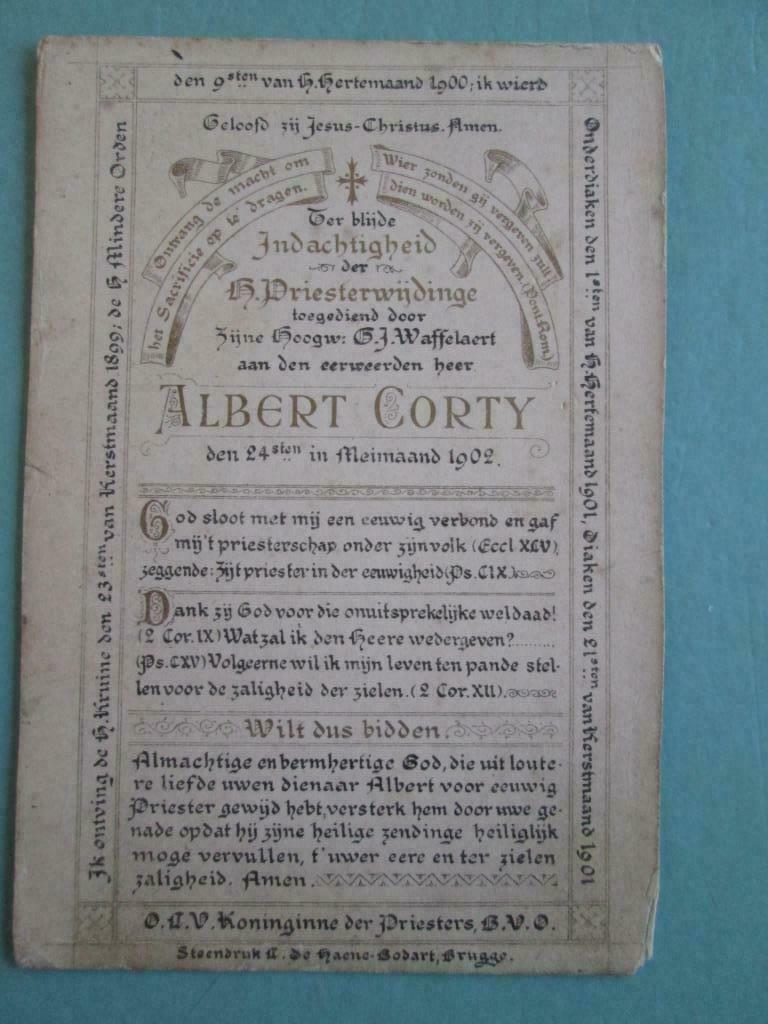 Ik ontving de H. Kruine den 23sten van Kerstmaand 1899; de H Mindere Orden
den 9sten van H. Hertemaand 1900; ik wierd
Onderdiaken den 1sten van H. Hertemaand 1901, Diaken den 21sten van Kerstmaand 1901
Geloofd zij Jesus-Christus. Amen.
Ontvang de macht om
het Sacrificie op te dragen.
Wier zonden gij vergeven zult
dien worden zij vergeven. (Pont. Rom)
Ter blijde
Indachtigheid
der
H. Priesterwijdinge
toegediend door
Zijne Hoogw: G.J. Waffelaert
aan den eerweerden heer
ALBERT CORTY
den 24sten in Meimaand 1902.
God sloot met mij een eeuwig verbond en gaf
mij 't priesterschap onder zijn volk (Eccl XLV),
zeggende: Zijt priester in der eeuwigheid (Ps. CIX.)
Dank zij God voor die onuitsprekelijke weldaad!
(2 Cor. IX) Wat zal ik den Heere wedergeven?.........
(Ps. CXV) Volgeerne wil ik mijn leven ten pande stel-
len voor de zaligheid der zielen. (2 Cor. XII).
Wilt dus bidden
Almachtige en bermhertige God, die uit loute-
re liefde uwen dienaar Albert voor eeuwig
Priester gewijd hebt, versterk hem door uwe ge-
nade opdat hij zijne heilige zendinge heiliglijk
moge vervullen, t'uwer eere en ter zielen
zaligheid. Amen.
O.L.V. Koninginne der Priesters, B.V.O.
Steendruk L. de Haene-Bodart, Brugge.